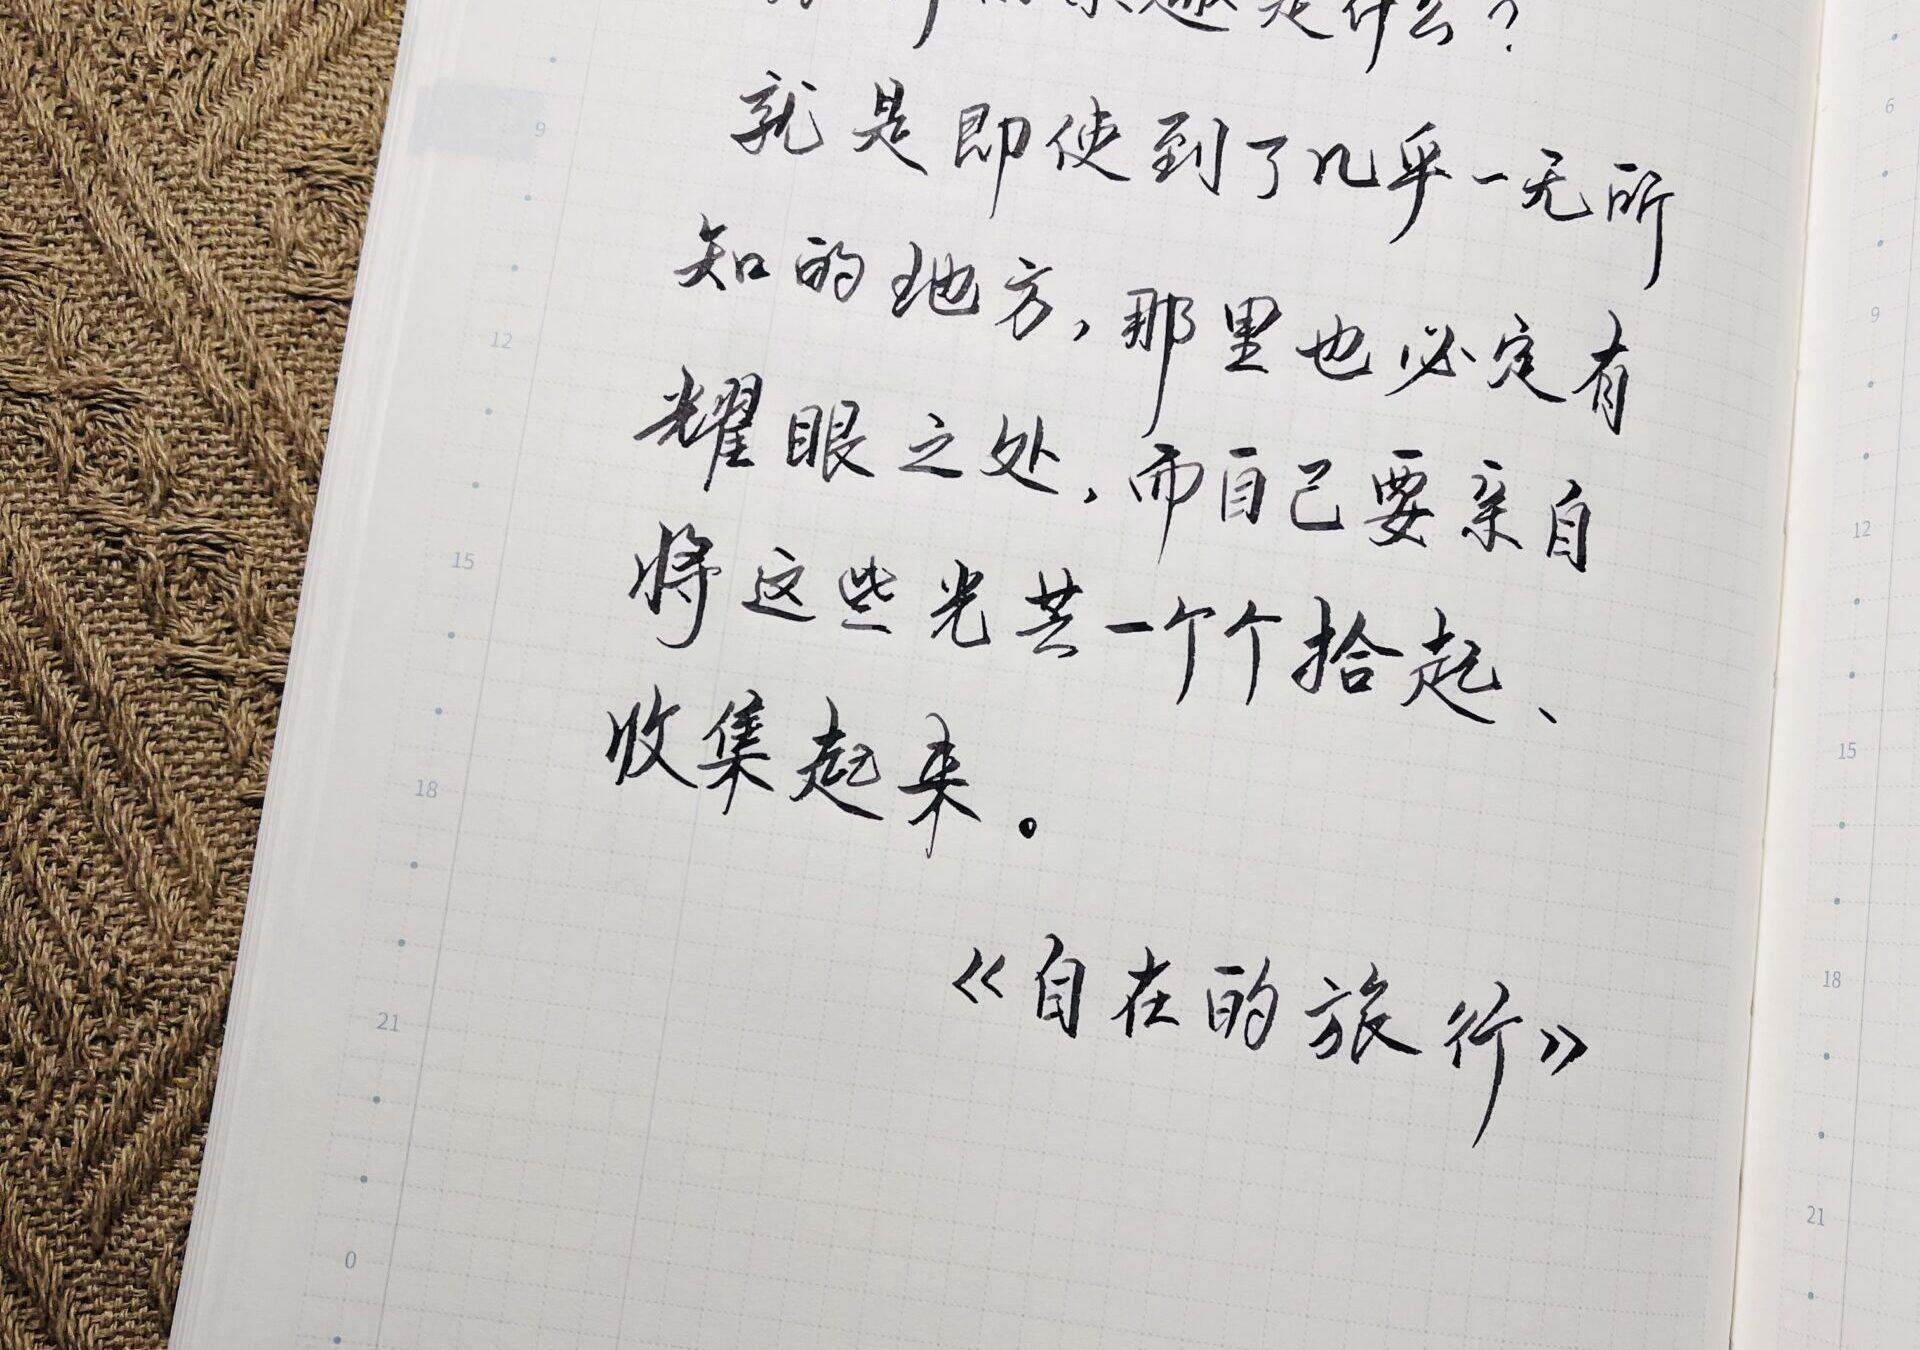 乐趣是什么？
就是即使到了几乎一无所
知的地方，那里也必定有
耀眼之处，而自己要亲自
将这些光芒一个个拾起、
收集起来。
《自在的旅行》
9
12
15
18
21
0
6
9
12
15
18
21